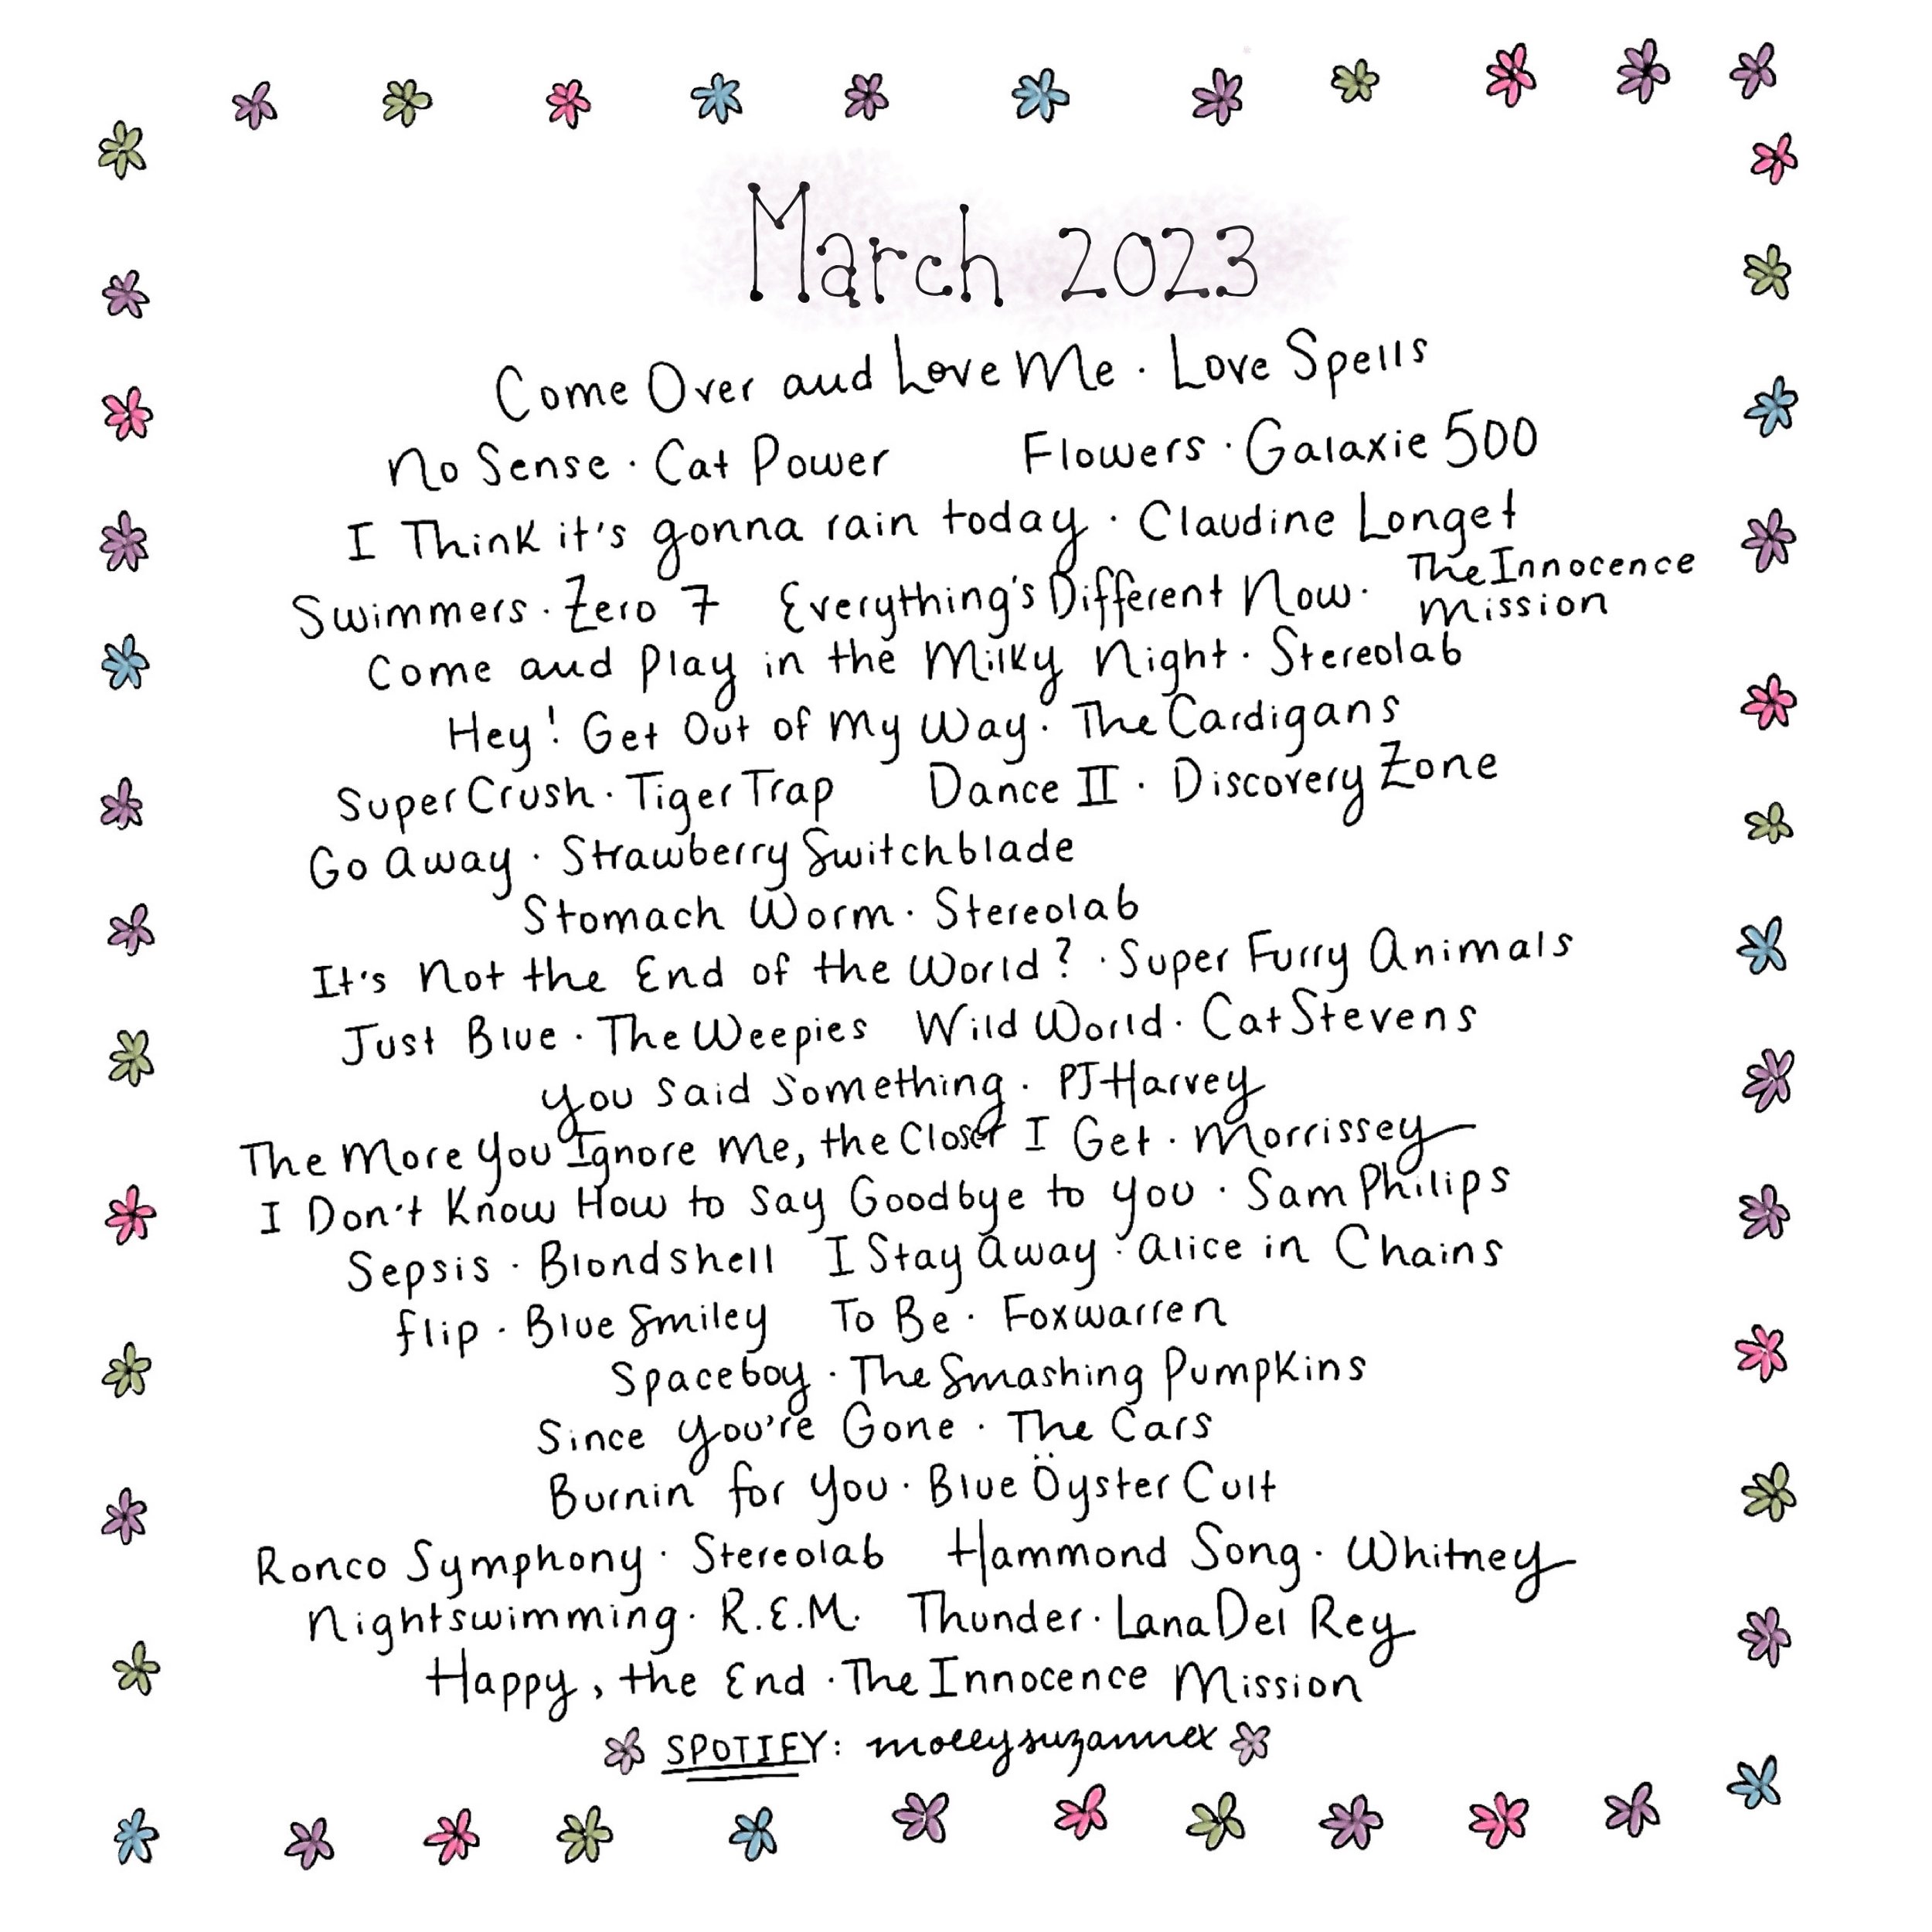 March 2023
Come Over and Love Me · Love Spells
No Sense · Cat Power Flowers · Galaxie 500
I Think it's gonna rain today · Claudine Longet
Swimmers · Zero 7 Everything's Different Now · The Innocence Mission
Come and Play in the Milky Night · Stereolab
Hey! Get Out of My Way · The Cardigans
Super Crush · Tiger Trap Dance II · Discovery Zone
Go Away · Strawberry Switchblade
Stomach Worm · Stereolab
It's Not the End of the World? · Super Furry Animals
Just Blue · The Weepies Wild World · Cat Stevens
You Said Something · PJ Harvey
The More You Ignore Me, the Closer I Get · Morrissey
I Don't Know How to Say Goodbye to You · Sam Philips
Sepsis · Blondshell I Stay Away · Alice in Chains
flip · Blue Smiley To Be · Foxwarren
Spaceboy · The Smashing Pumpkins
Since You're Gone · The Cars
Burnin' for You · Blue Öyster Cult
Ronco Symphony · Stereolab Hammond Song · Whitney
Nightswimming · R.E.M. Thunder · Lana Del Rey
Happy, the End · The Innocence Mission
SPOTIFY: mollysuzannex